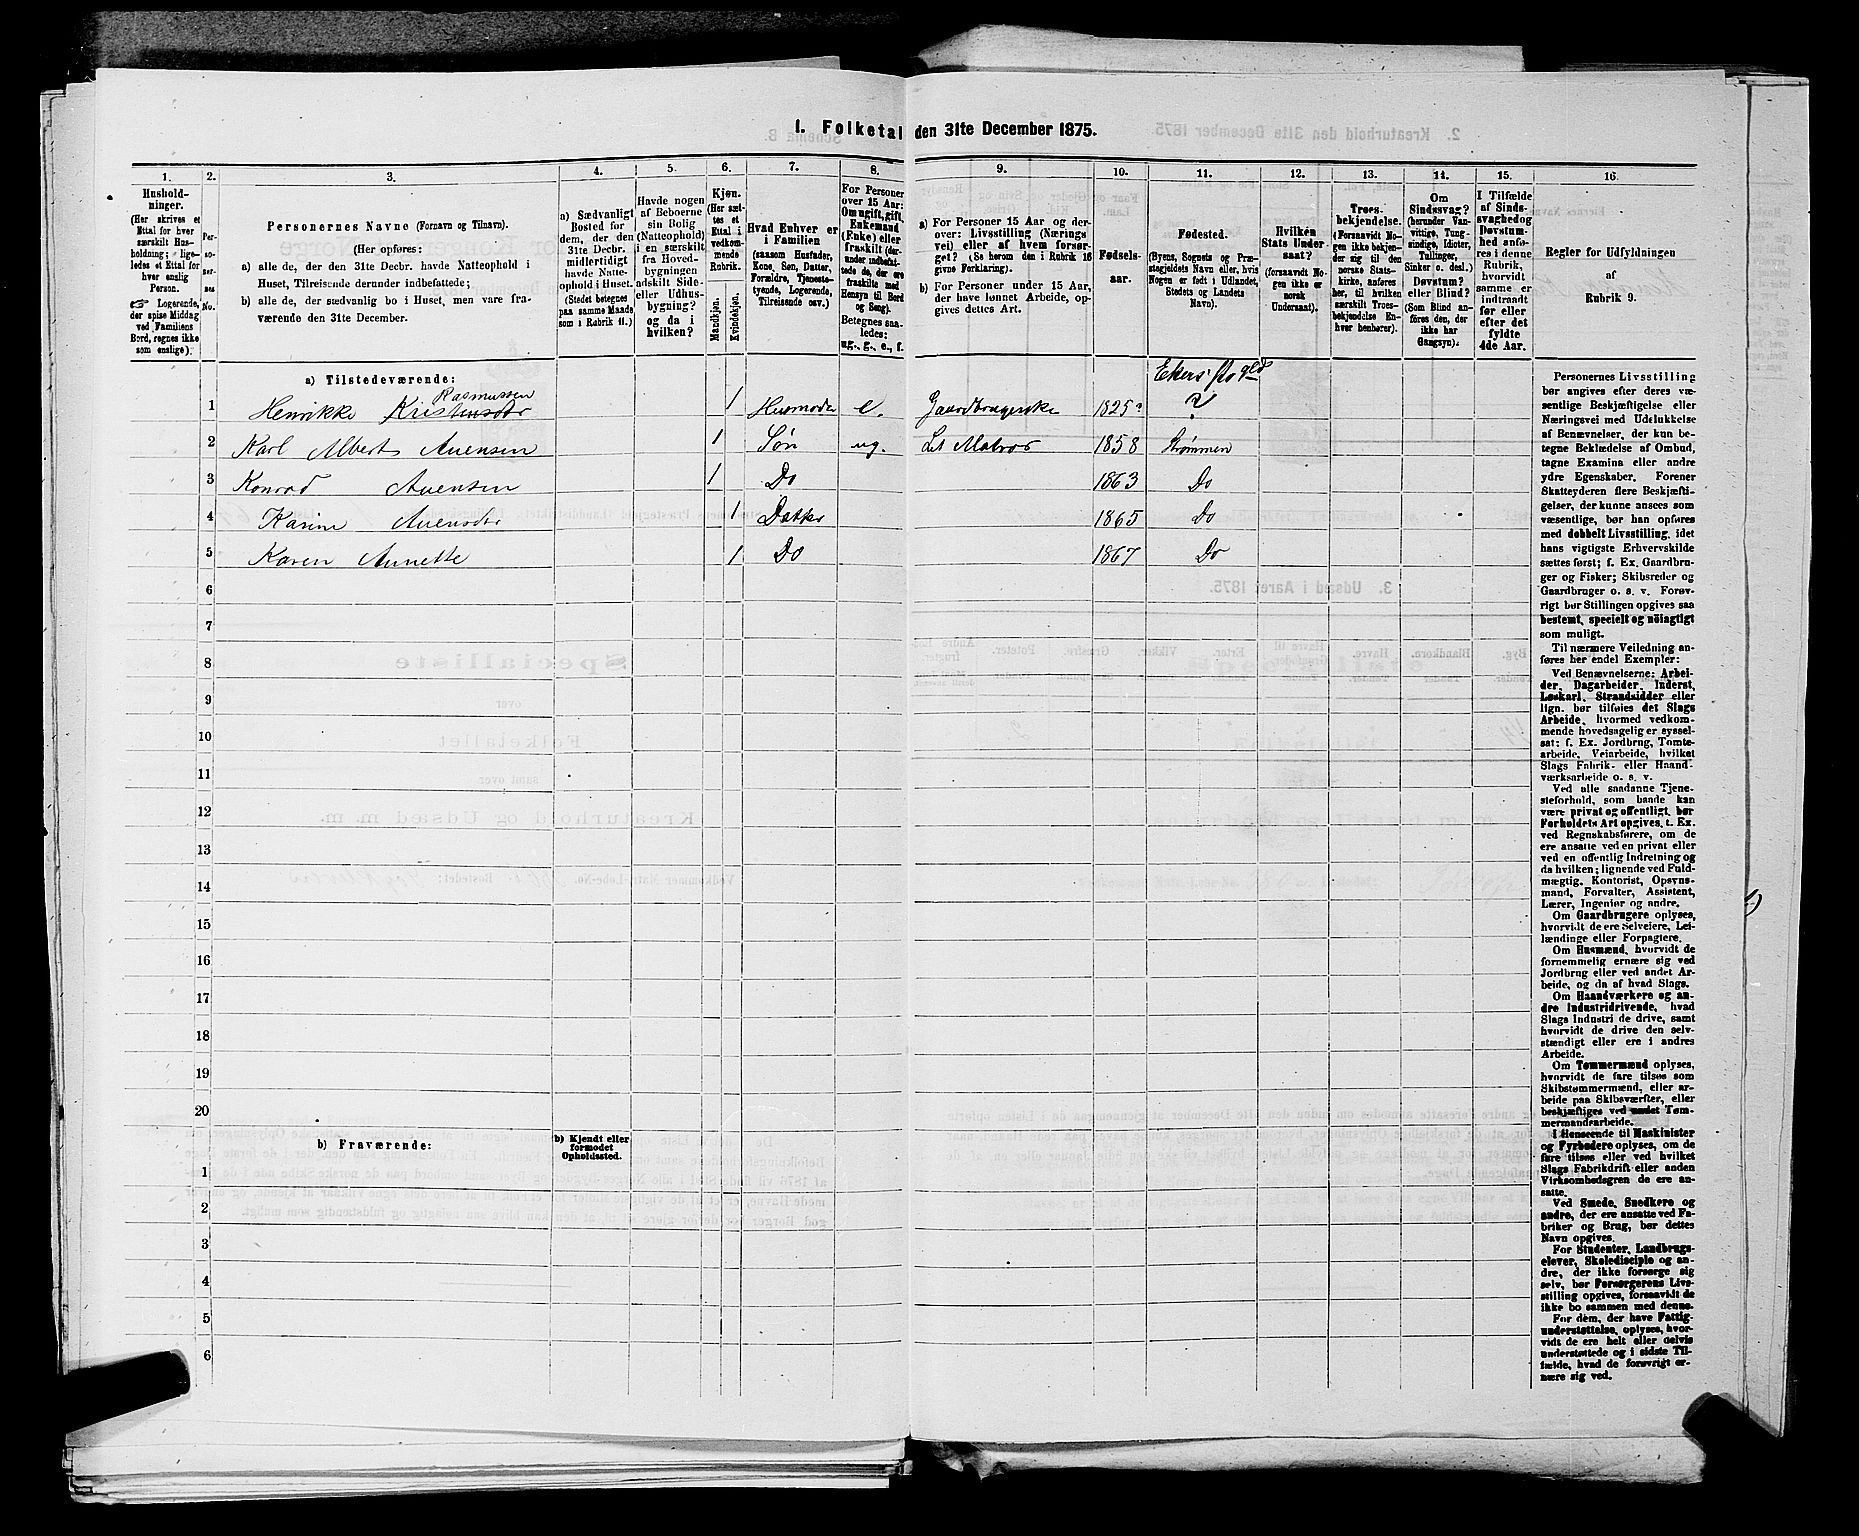 I. Folketal den 31te December 1875.
1. 2. 3. 4. 5. 6. 7. 8. 9. 10. 11. 12. 13. 14. 15. 16.
Hushold-
ninger.
(Her skrives et
Ettal for hver
særskilt Hus-
holdning; lige-
ledes et Ettal for
hver enslig
Person.
☞ Logerende,
der spise Middag
ved Familiens
Bord, regnes ikke
som enslige).
Per-
so-
ner-
nes
No.
Personernes Navne (Fornavn og Tilnavn).
(Her opføres:
a) alle de, der den 31te Decbr. havde Natteophold i
Huset, Tilreisende derunder indbefattede;
b) alle de, der sædvanlig bo i Huset, men vare fra-
værende den 31te December.
a) Sædvanligt
Bosted for
dem, der den
31te Decbr.
midlertidigt
havde Natte-
ophold i Huset.
(Stedet betegnes
paa samme Maade
som i Rubrik 11.)
Havde nogen
af Beboerne
sin Bolig
(Natteophold)
i en særskilt
fra Hoved-
bygningen
adskilt Side-
eller Udhus-
bygning?
og da i
hvilken?
Kjøn.
(Her sæt-
tes et
Ettal i
vedkom-
mende
Rubrik.
Mandkjøn.
Kvindekjøn.
Hvad Enhver er
i Familien
(saasom Husfader,
Kone, Søn, Datter,
Forældre, Tjeneste-
tyende, Logerende,
Tilreisende osv.)
For Personer
over 15 Aar:
Om ugift, gift,
Enkemand
(Enke) eller
fraskilt (der-
under indbefat-
tede de, der ere
fraskilte med
Hensyn til Bord
og Seng).
Betegnes saa-
ledes:
ug., g., e., f.
a) For Personer 15 Aar og der-
over: Livsstilling (Nærings
vei) eller af hvem forsør-
get? (Se herom den i Rubrik 16
givne Forklaring).
b) For Personer under 15 Aar,
der have lønnet Arbeide, op-
gives dettes Art.
Fødsels-
aar.
Fødested.
(Byens, Sognets og Præ-
stegjeldets Navn eller, hvis
Nogen er født i Udlandet,
Stedets og Landets
Navn).
Hvilken
Stats Under-
saat?
(forsaavidt No-
gen ikke er
norsk
Undersaat).
Troes-
bekjendelse.
(Forsaavidt No-
gen ikke bekjen-
der sig til den
norske Stats-
kirke, anføres
her, til hvilken
særskilt Troes-
bekjendelse En-
hver henhører).
Om
Sindssvag?
(herunder Van-
vittige, Tung-
sindige, Idioter,
Tullinger,
Sinker o. desl.)
Døvstum?
eller Blind?
(Som Blind an-
føres den, der
ikke har
Gangsyn).
I Tilfælde
af Sinds-
svaghed og
Døvstum-
hed anfø-
res i denne
Rubrik,
hvorvidt
samme er
indtraadt
før eller
efter det
fyldte
4de Aar.
Regler for Udfyldningen
af
Rubrik 9.
a) Tilstedeværende:
Ekers Prgld
Rasmussen
1 Henrikke Kristensdtr 1 Husmoder e. Gaardbrugerske 1825? ?
2 Karl Albert Auensen 1 Søn ug. Let Matros 1858 Strømmen
3 Konrad Auensen 1 Do 1863 Do
4 Karine Auensdtr 1 Datter 1865 Do
5 Karen Annette 1 Do 1867 Do
6
7
8
9
10
11
12
13
14
15
16
17
18
19
20
b) Fraværende:
b) Kjendt eller
formodet
Opholdssted.
1
2
3
4
5
6
Personernes Livsstilling
bør angives efter deres væ-
sentlige Beskjæftigelse eller
Næringsvei med Udelukkelse
af Benævnelser, der kun be-
tegne Beklædelse af Ombud,
tagne Examina eller andre
ydre Egenskaber. Forener
Skatteyderen flere Beskjæfti-
gelser, der kunne ansees som
væsentlige, bør han opføres
med dobbelt Livsstilling, idet
hans vigtigste Erhvervskilde
sættes først; f. Ex. Gaardbru-
ger og Fisker; Skibsreder og
Gaardbruger o. s. v. Forøv-
rigt bør Stillingen opgives saa
bestemt, specielt og nöiagtigt
som muligt.
Til nærmere Veiledning an-
føres her endel Exempler:
Ved Benævnelserne: Arbei-
der, Dagarbeider, Inderst,
Løskarl, Strandsidder eller
lign. bør tilføies det Slags
Arbeide, hvormed vedkom-
mende hovedsagelig er syssel-
sat; f. Ex. Jordbrug, Tomte-
arbeide, Veiarbeide, hvilket
Slags Fabrik- eller Haand-
værksarbeide o. s. v.
Ved alle saadanne Tjene-
steforhold, som baade kan
være privat og offentligt, bør
Forholdets Art opgives, t. Ex.
ved Regnskabsførere, om de
ere ansatte ved en privat eller
ved en offentlig Indretning og
da hvilken; lignende ved Fuld-
mægtig, Kontorist, Opsyns-
mand, Forvalter, Assistent,
Lærer, Ingeniør og andre.
Om Gaardbrugere oplyses,
hvorvidt de ere Selveiere, Lei-
lændinge eller Forpagtere.
Om Husmænd, hvorvidt de
fornemmelig ernære sig ved
Jordbrug eller ved andet Ar-
beide, og da af hvad Slags.
Om Haandværkere og an-
dre Industridrivende, hvad
Slags Industri de drive, samt
hvorvidt de drive den selv-
stændigt eller ere i andres
Arbeide.
Om Tømmermænd oplyses,
hvorvidt de fare tilsøs som
Skibstømmermænd, eller ar-
beide paa Skibsværfter, eller
beskjæftiges ved andet Tøm-
mermandsarbeide.
I Henseende til Maskinister
og Fyrbødere oplyses, om de
fare tilsøs eller ved hvilket
Slags Fabrikdrift eller anden
Virksomhedsgren de ere an-
satte.
Ved Smede, Snedkere og
andre, der ere ansatte ved Fa-
briker og Brug, bør dettes
Navn opgives.
For Studenter, Landbrugs-
elever, Skoledisciple og an-
dre, der ikke forsørge sig
selv, bør Forsørgerens Livs-
stilling opgives, forsaavidt de
ikke bo sammen med denne.
For dem, der have Fattig-
understøttelse, oplyses, hvor-
vidt de ere helt eller delvis
understøttede og i sidste Til-
fælde, hvad de forøvrigt er-
nære sig ved.